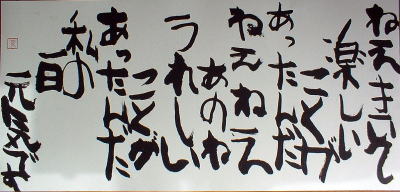 ねえきいて
楽しい
ことが
あったんだ
ねえねえ
あのね
うれしい
ことが
あったんだ
私の
一日